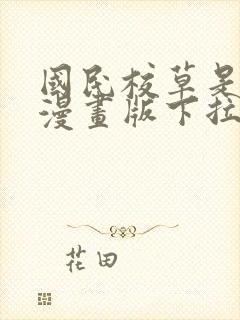 國民校草是
漫畫版下拉
花田